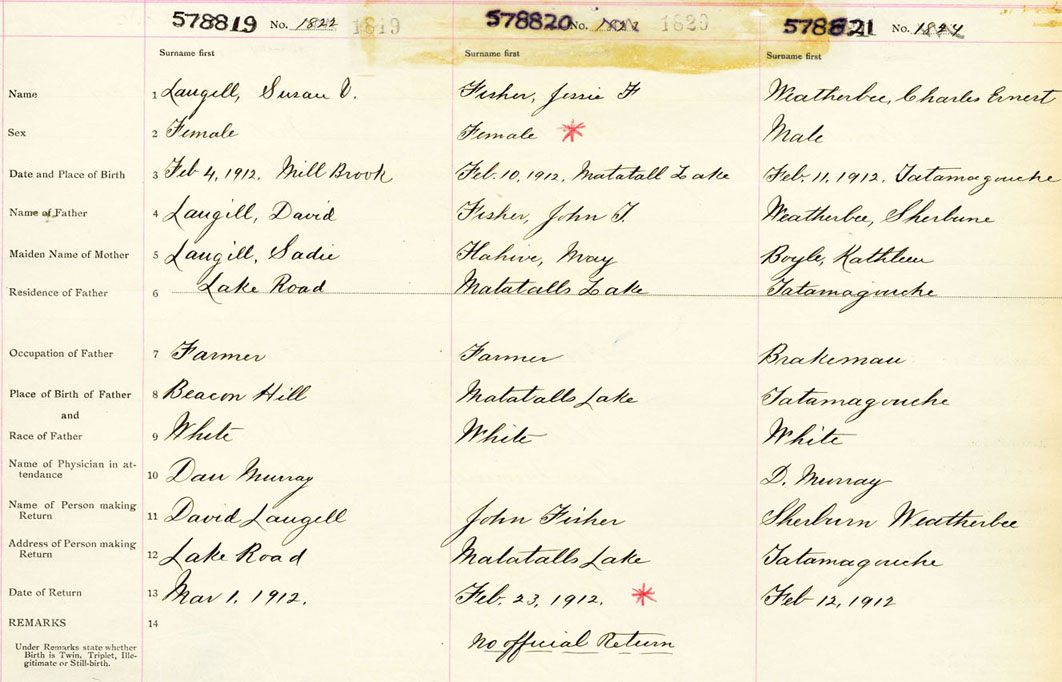 578819 No. 1822 1819 578820 No. 1620 578821 No. 1824
Surname first Surname first Surname first
Name 1 Langill, Susan V. Fisher, Jessie F Weatherbee, Charles Ernest
Sex 2 Female Female * Male
Date and Place of Birth 3 Feb 4, 1912. Mill Brook Feb. 10, 1912, Matatall Lake Feb. 11, 1912. Tatamagouche
Name of Father 4 Langill, David Fisher, John T. Weatherbee, Sherburne
Maiden Name of Mother 5 Langill, Sadie May Boyle, Kathleen
Residence of Father 6 Lake Road Matatalls Lake Tatamagouche
Occupation of Father 7 Farmer Farmer Brakeman
Place of Birth of Father 8 Beacon Hill Matatalls Lake Tatamagouche
and
Race of Father 9 White White White
Name of Physician in at-
tendance 10 Dan Murray D. Murray
Name of Person making
Return 11 David Langell John Fisher Sherburn Weatherbee
Address of Person making
Return 12 Lake Road Matatalls Lake Tatamagouche
Date of Return 13 Mar 1. 1912. Feb. 23, 1912. * Feb 12, 1912
REMARKS 14
Under Remarks state whether
Birth is Twin, Triplet, Ille-
gitimate or Still-birth.
No official Return